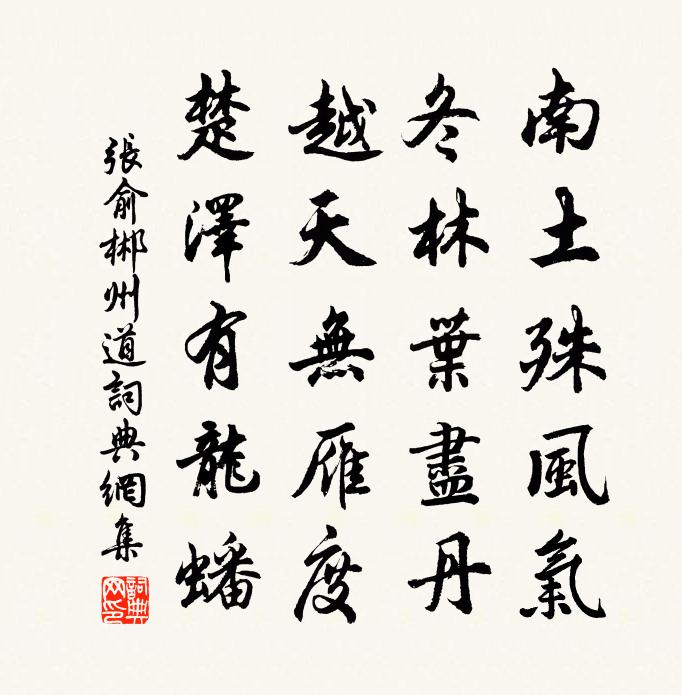 南土殊風氣
冬林葉盡丹
越天無雁度
楚澤有龍蟠
張俞郴州道詞典網集
詞典網印